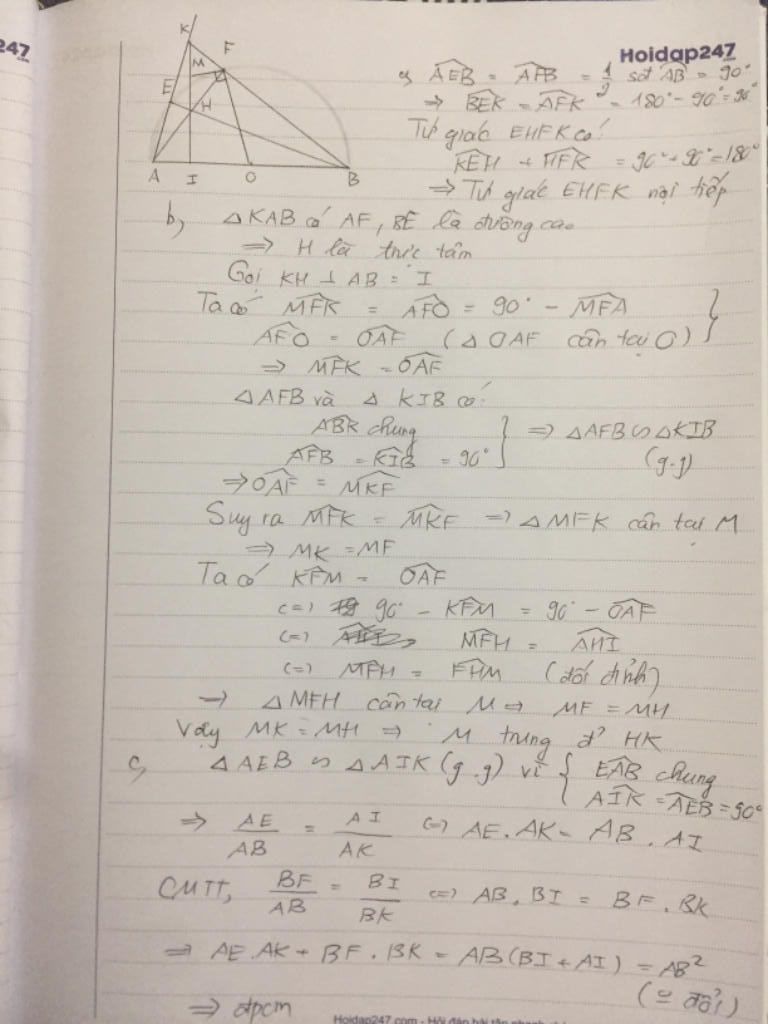 247
Hoidap247
K
F
M
E
H
A
I
O
B
a, AEB = AFB = 1/2 sđt AB = 90°
=> BEK = AFK = 180° - 90° = 90°
Tứ giác EHFK có:
KEH + HFK = 90° + 90° = 180°
=> Tứ giác EHFK nội tiếp
b, △KAB có AF, BE là đường cao
=> H là trực tâm
Gọi KH ⊥ AB = I
Ta có MFK = AFO = 90° - MFA
AFO = OAF (△OAF cân tại O) }
=> MFK = OAF
△AFB và △KIB có:
ABK chung
AFB = KIB = 90° } => △AFB ∽ △KIB
(g-g)
=> OAF = MKF
Suy ra MFK = MKF => △MFK cân tại M
=> MK = MF
Ta có KFM = OAF
<=> 90° - KFM = 90° - OAF
<=> MFH = AHI
<=> MFH = FHM (đối đỉnh)
=> △MFH cân tại M => MF = MH
Vậy MK = MH => M trung đ² HK
c, △AEB ∽ △AIK (g.g) vì { EAB chung
AIK = AEB = 90°
=> AE/AB = AI/AK <=> AE.AK = AB.AI
CMTT, BF/AB = BI/BK <=> AB.BI = BF.BK
=> AE.AK + BF.BK = AB(BI + AI) = AB²
(ko đổi)
=> đpcm
Hoidap247.com - Hỏi đáp bài tập nhanh